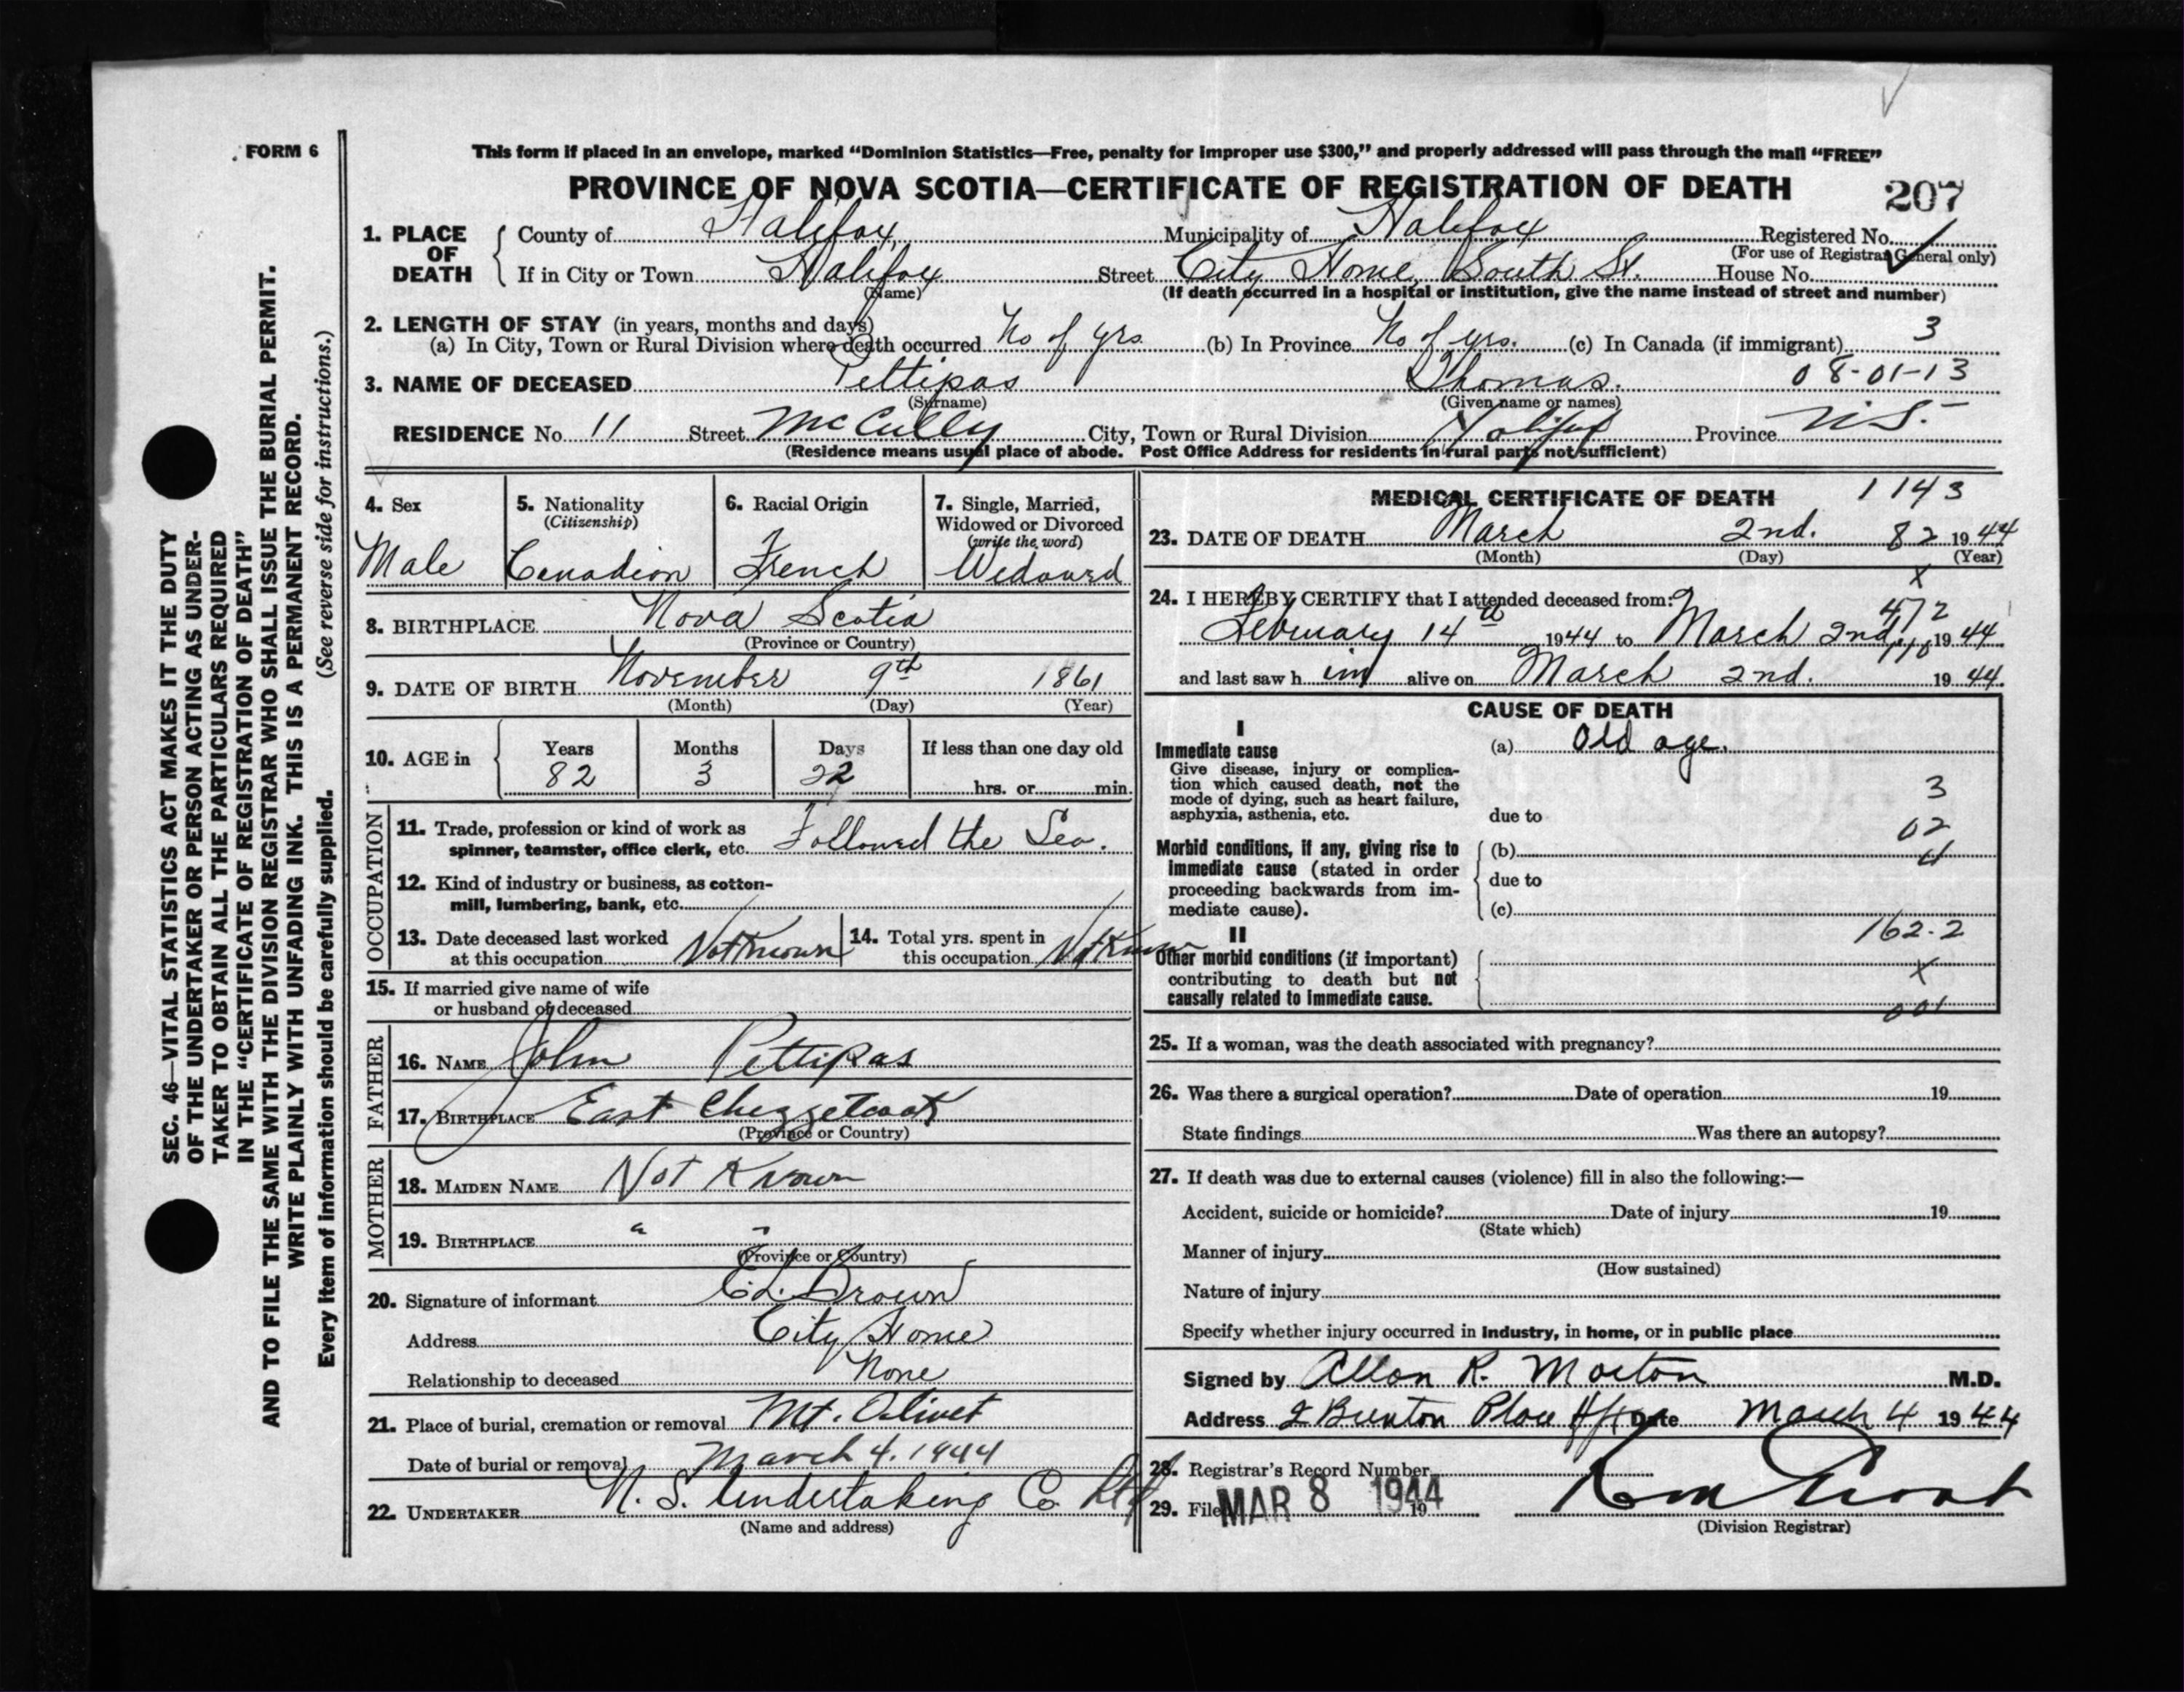 FORM 6
This form if placed in an envelope, marked “Dominion Statistics—Free, penalty for improper use $300,” and properly addressed will pass through the mail “FREE”
PROVINCE OF NOVA SCOTIA—CERTIFICATE OF REGISTRATION OF DEATH 207
1. PLACE OF DEATH County of Halifax, Municipality of Halifax Registered No.
(For use of Registrar General only)
If in City or Town Halifax Street City Home, South St. House No.
(Name) (If death occurred in a hospital or institution, give the name instead of street and number)
2. LENGTH OF STAY (in years, months and days)
(a) In City, Town or Rural Division where death occurred No of yrs (b) In Province No of yrs. (c) In Canada (if immigrant) 3
3. NAME OF DECEASED Pettipas Thomas. 08-01-13
(Surname) (Given name or names)
RESIDENCE No. 11 Street McCully City, Town or Rural Division Halifax Province N.S.
(Residence means usual place of abode. Post Office Address for residents in rural parts not sufficient)
4. Sex
Male
5. Nationality
(Citizenship)
Canadian
6. Racial Origin
French
7. Single, Married,
Widowed or Divorced
(write the word)
Widowed
8. BIRTHPLACE Nova Scotia
(Province or Country)
9. DATE OF BIRTH November 9th 1861
(Month) (Day) (Year)
10. AGE in Years Months Days If less than one day old
82 3 22 hrs. or min.
OCCUPATION
11. Trade, profession or kind of work as
spinner, teamster, office clerk, etc. Followed the Sea.
12. Kind of industry or business, as cotton-
mill, lumbering, bank, etc.
13. Date deceased last worked
at this occupation Not Known
14. Total yrs. spent in
this occupation Not Known
15. If married give name of wife
or husband of deceased
FATHER
16. NAME John Pettipas
17. BIRTHPLACE East Chezzetcook
(Province or Country)
MOTHER
18. MAIDEN NAME Not Known
19. BIRTHPLACE " "
(Province or Country)
20. Signature of informant Ed. Brown
Address City Home
Relationship to deceased None
21. Place of burial, cremation or removal Mt. Olivet
Date of burial or removal March 4. 1944
22. UNDERTAKER N. S. Undertaking Co. Ltd
(Name and address)
MEDICAL CERTIFICATE OF DEATH 1143
23. DATE OF DEATH March 2nd. 82 1944
(Month) (Day) (Year)
x
24. I HEREBY CERTIFY that I attended deceased from:
472
February 14th 1944 to March 2nd, 1944
and last saw him alive on March 2nd. 1944.
CAUSE OF DEATH
I
Immediate cause
Give disease, injury or complica-
tion which caused death, not the
mode of dying, such as heart failure,
asphyxia, asthenia, etc.
(a) Old age.
3
due to
02
Morbid conditions, if any, giving rise to
immediate cause (stated in order
proceeding backwards from im-
mediate cause).
(b)
due to
(c)
162-2
II
Other morbid conditions (if important)
contributing to death but not
causally related to immediate cause.
x
001
25. If a woman, was the death associated with pregnancy?
26. Was there a surgical operation? Date of operation 19
State findings Was there an autopsy?
27. If death was due to external causes (violence) fill in also the following:—
Accident, suicide or homicide? Date of injury 19
(State which)
Manner of injury
(How sustained)
Nature of injury
Specify whether injury occurred in industry, in home, or in public place
Signed by Allan R. Morton M.D.
Address 2 Brenton Place Hfx Date March 4 1944
28. Registrar's Record Number
29. File MAR 8 1944 19
(Division Registrar)
SEC. 46—VITAL STATISTICS ACT MAKES IT THE DUTY
OF THE UNDERTAKER OR PERSON ACTING AS UNDER-
TAKER TO OBTAIN ALL THE PARTICULARS REQUIRED
IN THE “CERTIFICATE OF REGISTRATION OF DEATH”
AND TO FILE THE SAME WITH THE DIVISION REGISTRAR WHO SHALL ISSUE THE BURIAL PERMIT.
WRITE PLAINLY WITH UNFADING INK. THIS IS A PERMANENT RECORD.
Every item of information should be carefully supplied. (See reverse side for instructions.)